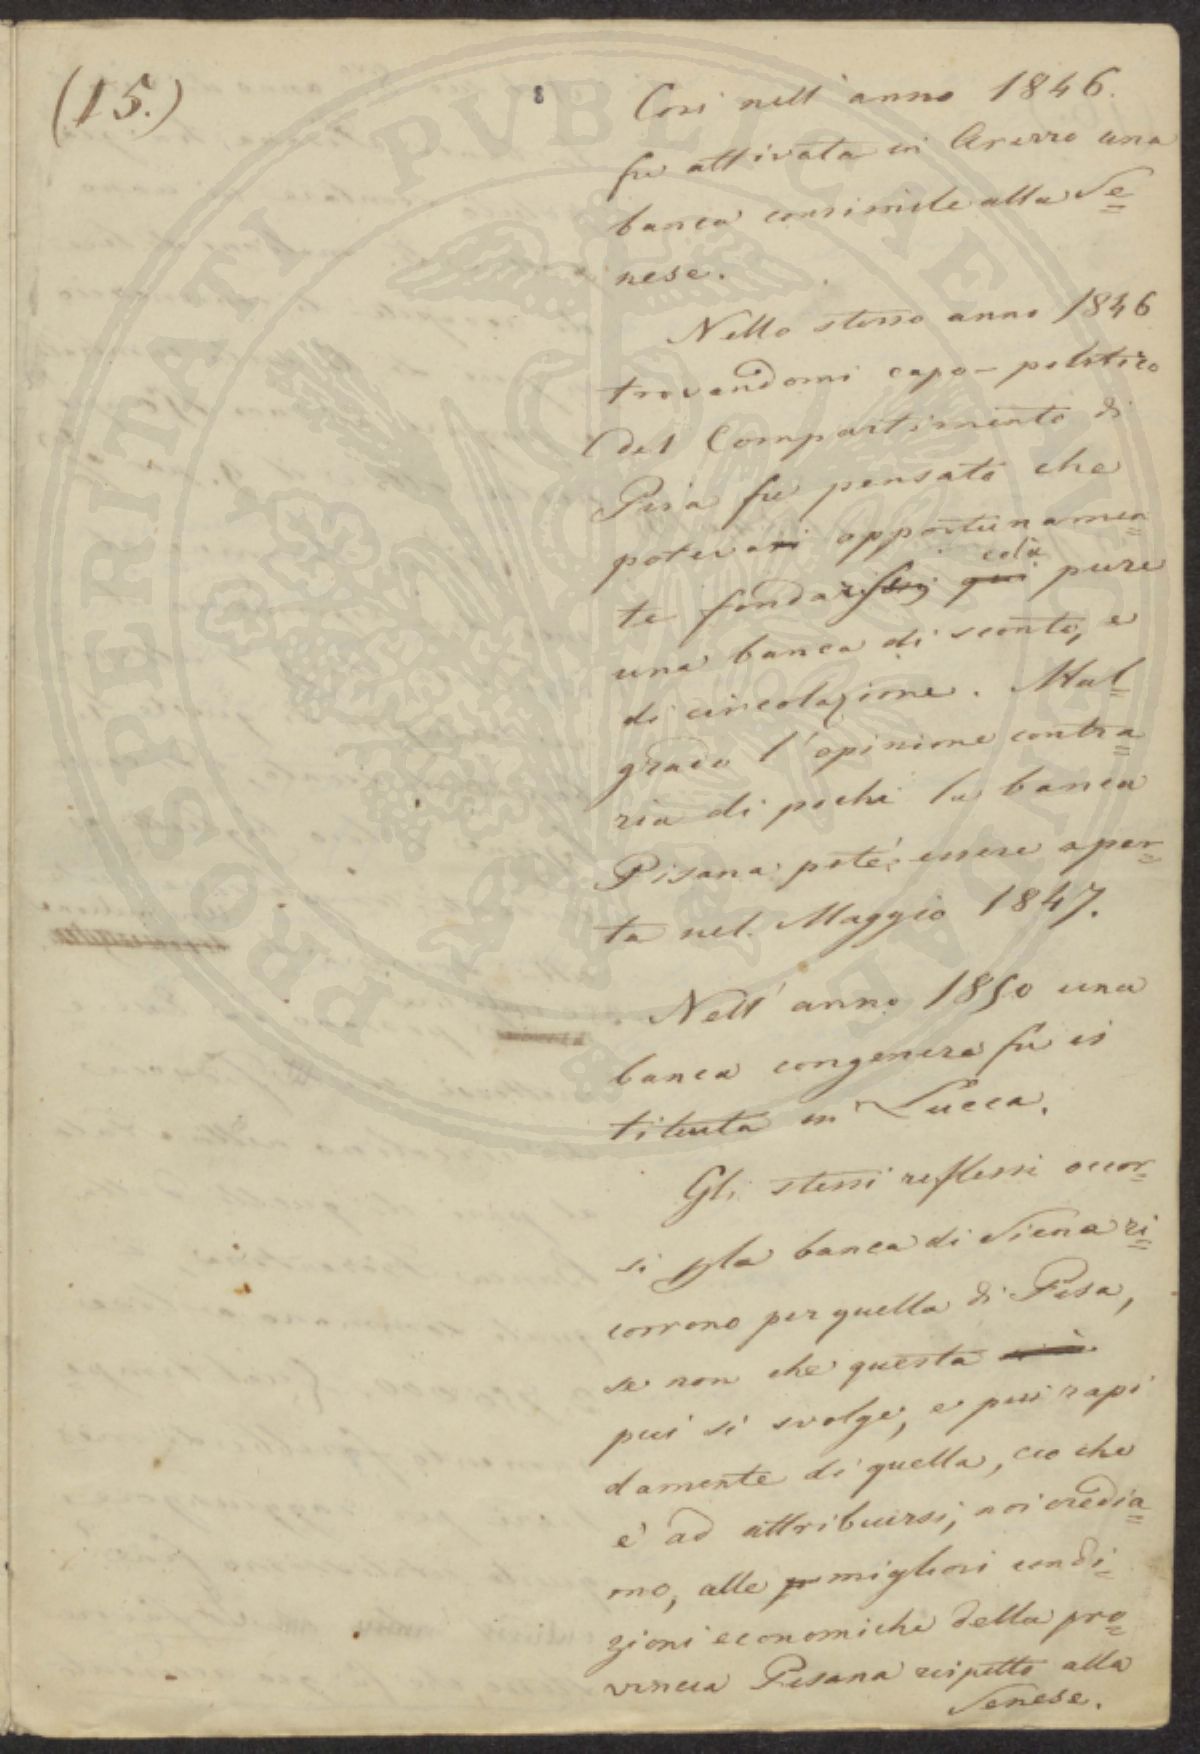 (15.)
8
Così nell'anno 1846.
fu attivata in Arezzo una
banca consimile alla Se=
nese.
Nello stesso anno 1846
trovandomi capo-politico
del Compartimento di
Pisa fu pensato che
potevasi opportunamen=
te fondarsi colà pure
una banca di sconto, e
di circolazione. Mal=
grado l'opinione contra=
ria di pochi la banca
Pisana poté essere aper=
ta nel Maggio 1847.
Nell'anno 1850 una
banca congenere fù is
tituita in Lucca.
Gli stessi reflessi occor=
si pla banca di Siena ri=
corrono per quella di Pisa,
se non che questa
piu si svolge, e piu rapi
damente di quella, cio che
è ad attribuirsi, noi credia=
mo, alle migliori condi=
zioni economiche della pro=
vincia Pisana rispetto alla
Senese.
PROSPERITATI PVBLICAE